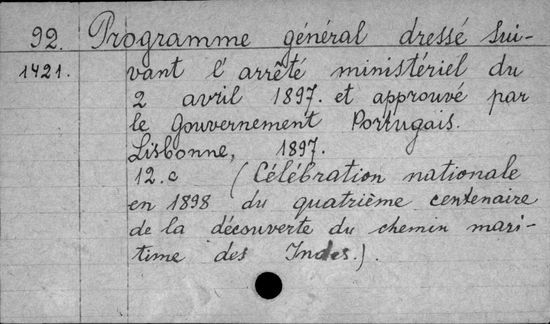 92. Programme général dressé sui-
1421. vant l'arrêté ministériel du
2 avril 1897. et approuvé par
le Gouvernement Portugais.
Lisbonne, 1897.
12.c (Célébration nationale
en 1898 du quatrième centenaire
de la découverte du chemin mari-
time des Indes.).